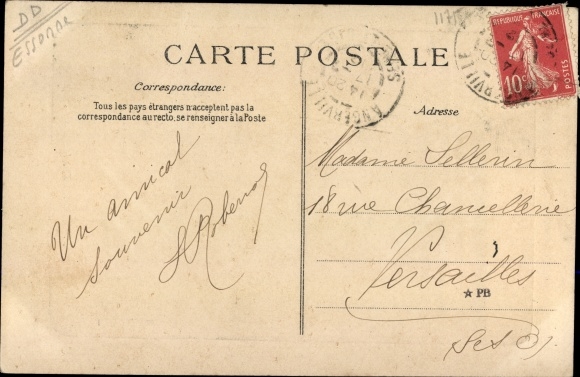 DD
ESSONNE
CARTE POSTALE
REPUBLIQUE FRANÇAISE
10c
POSTES
ANGERVILLE
Correspondance:
Tous les pays étrangers n'acceptent pas la
correspondance au recto, se renseigner à la Poste
Un amical
souvenir
Adresse
Madame Sellerin
18 rue Chancellerie
Versailles
☆ PB
S et O